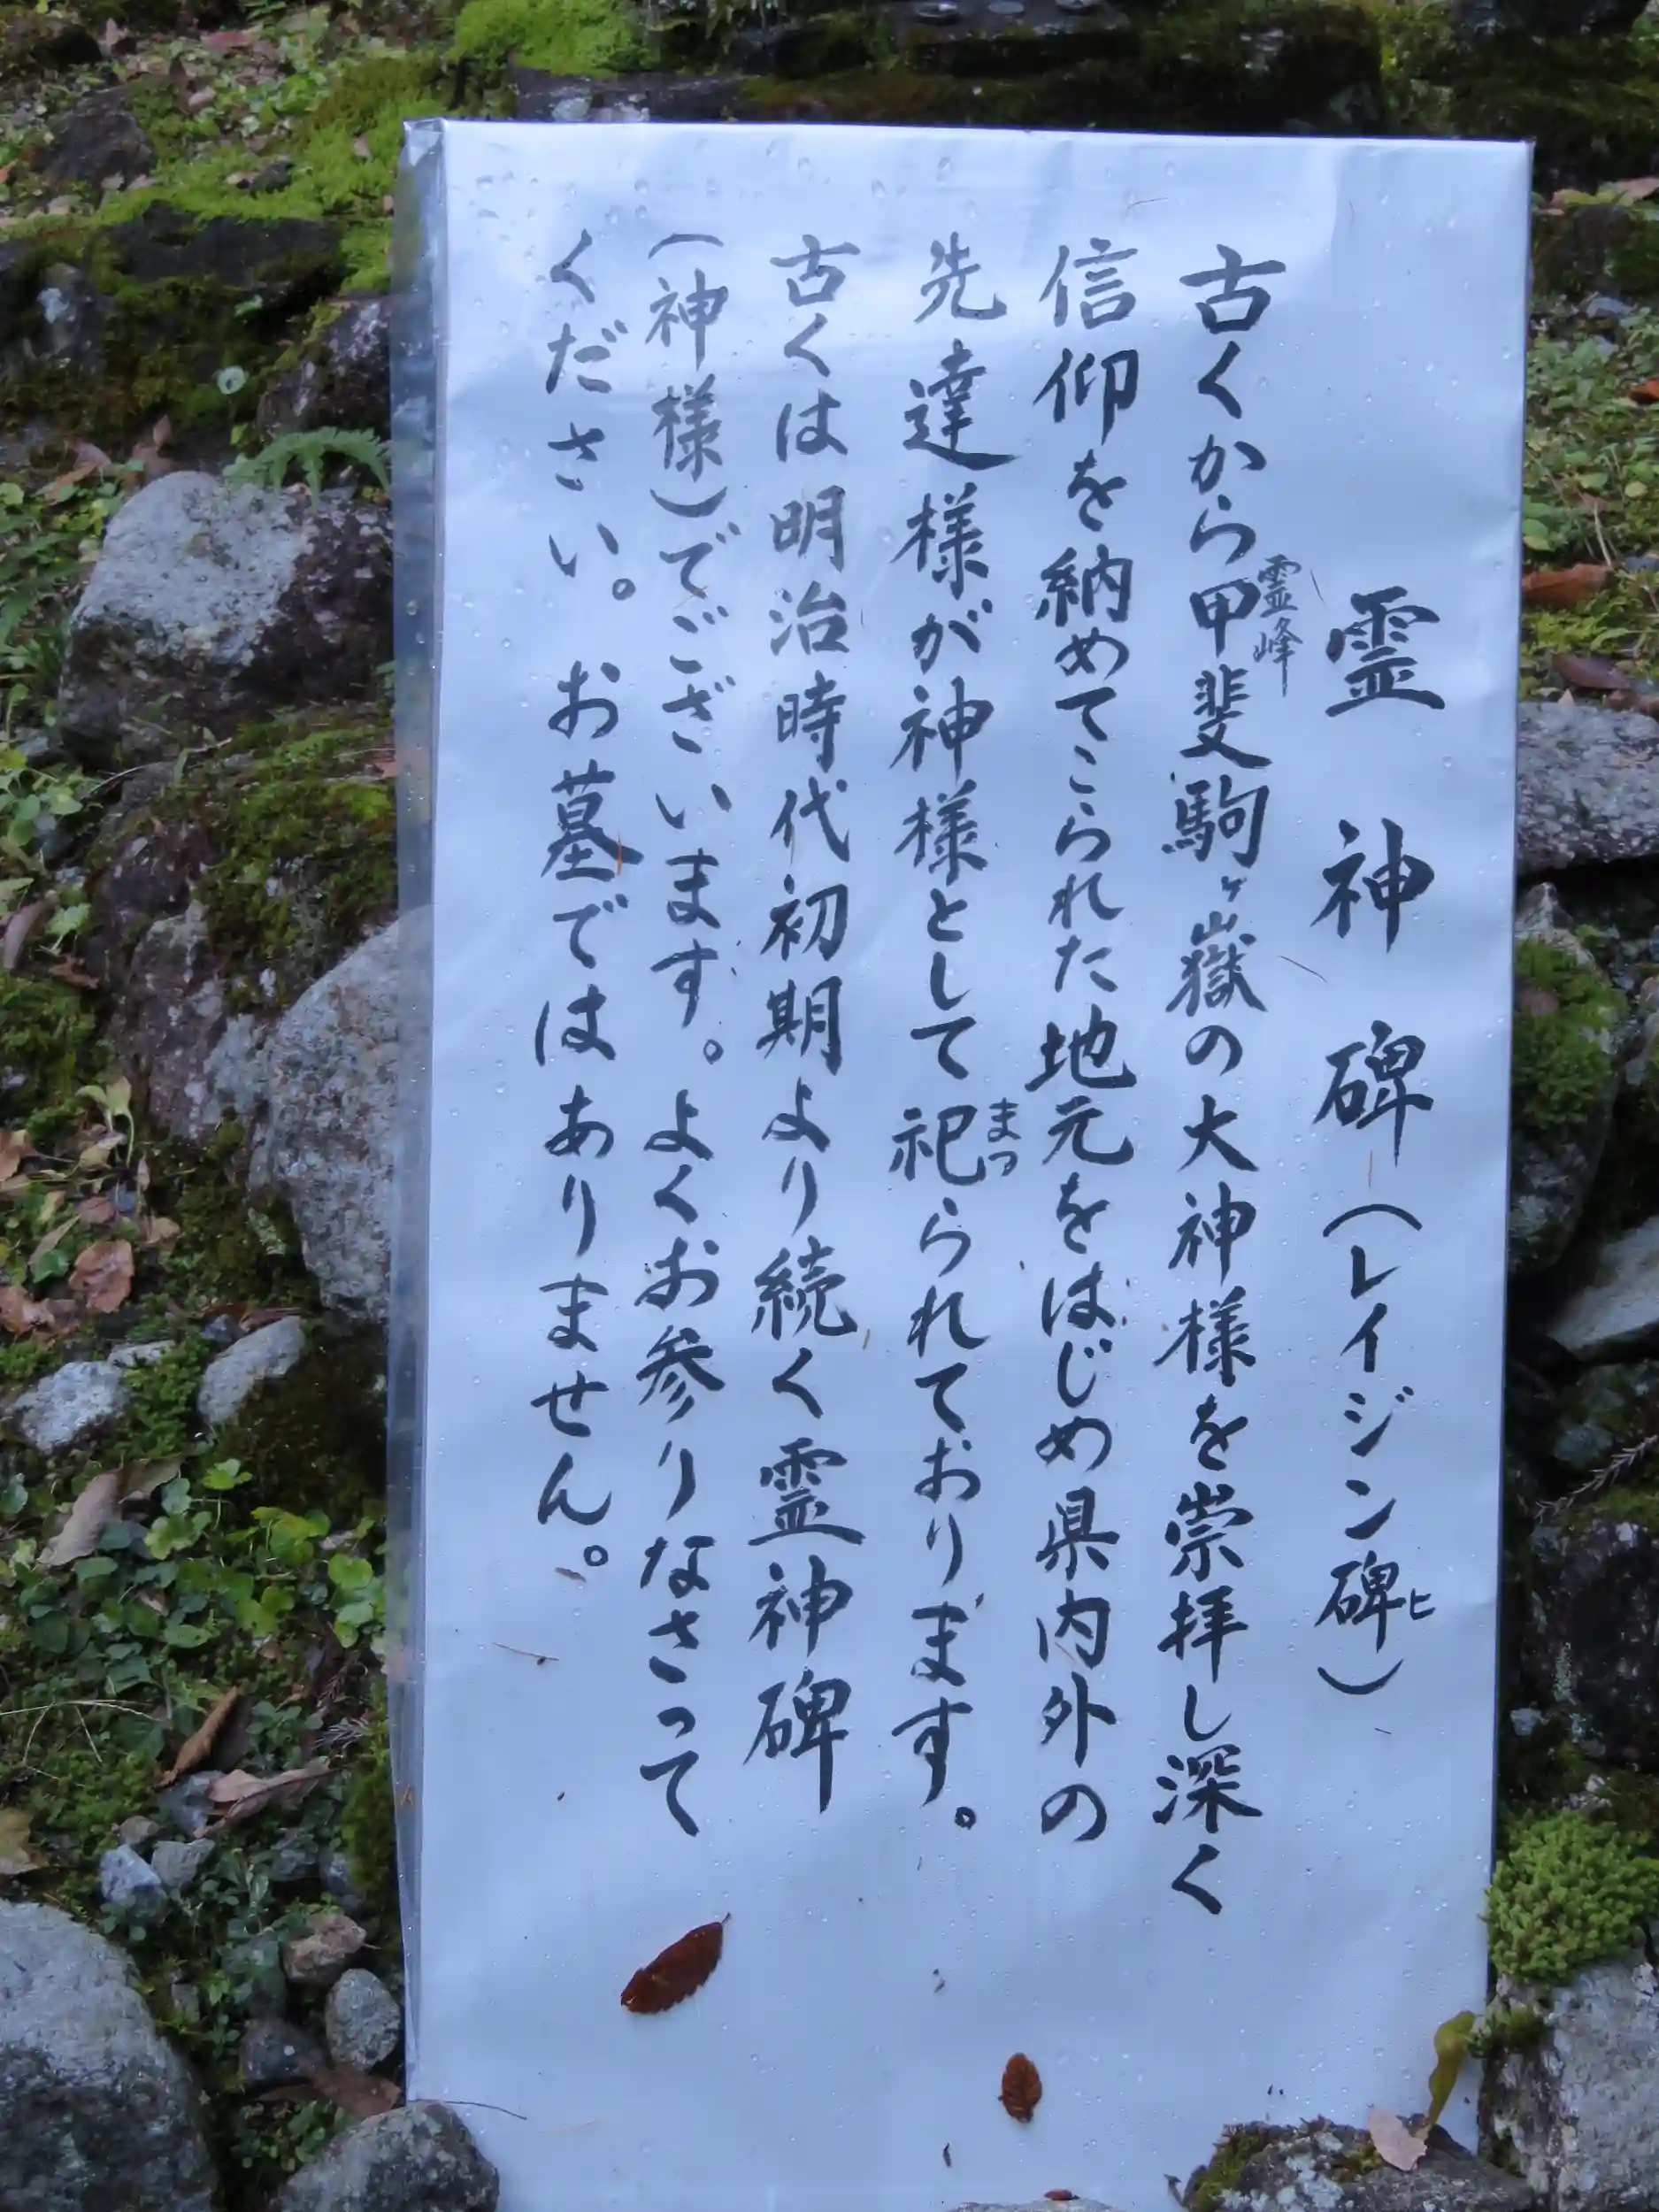 霊神碑(レイジン碑ヒ)
古くから霊峰甲斐駒ヶ嶽の大神様を崇拝し深く
信仰を納めてこられた地元をはじめ県内外の
先達様が神様として祀まつられております。
古くは明治時代初期より続く霊神碑
(神様)でございます。よくお参りなさって
ください。お墓ではありません。